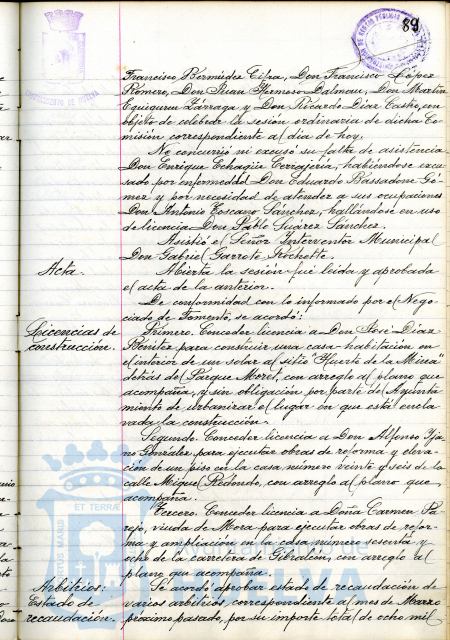 89
Francisco Bermúdez Cifra, Don Francisco López
Romero, Don Juan Hermoso Dalmau, Don Martín
Equiguren Zárraga y Don Ricardo Díaz Castro, con
objeto de celebrar la sesión ordinaria de dicha Co-
misión correspondiente al día de hoy.
No concurrió ni excusó su falta de asistencia
Don Enrique Echagüe Cerrajería, habiéndose excu-
sado por enfermedad Don Eduardo Bassadone Gó-
mez y por necesidad de atender a sus ocupaciones
Don Antonio Toscano Sánchez, hallándose en uso
de licencia Don Pablo Suárez Sánchez.
Asistió el Señor Interventor Municipal
Don Gabriel Garrote Rochette.
Acta. Abierta la sesión fué leida y aprobada
el acta de la anterior.
De conformidad con lo informado por el Nego-
ciado de Fomento, se acordó:
Licencias de Primero. Conceder licencia a Don José Díaz
construcción. Benítez para construir una casa-habitación en
el interior de un solar al sitio "Huerto de la Mirea"
detrás del Parque Moret, con arreglo al plano que
acompaña, y sin obligación por parte de Ayunta-
miento de urbanizar el lugar en que está encla-
vada la construcción.
Segundo. Conceder licencia a Don Alfonso
González, para ejecutar obras de reforma y eleva-
ción de un piso en la casa número veinte y seis de la
calle Miguel Redondo, con arreglo al plano que
acompaña.
Tercero. Conceder licencia a Doña Carmen Pa-
rejo, viuda de Mora para ejecutar obras de refor-
ma y ampliación en la casa número sesenta y
ocho de la carretera de Gibraleón, con arreglo al
plano que acompaña.
Arbitrios: Se acordó aprobar estado de recaudación de
Estado de varios arbitrios, correspondiente al mes de Marzo
recaudación. próximo pasado, por su importe total de ocho mil